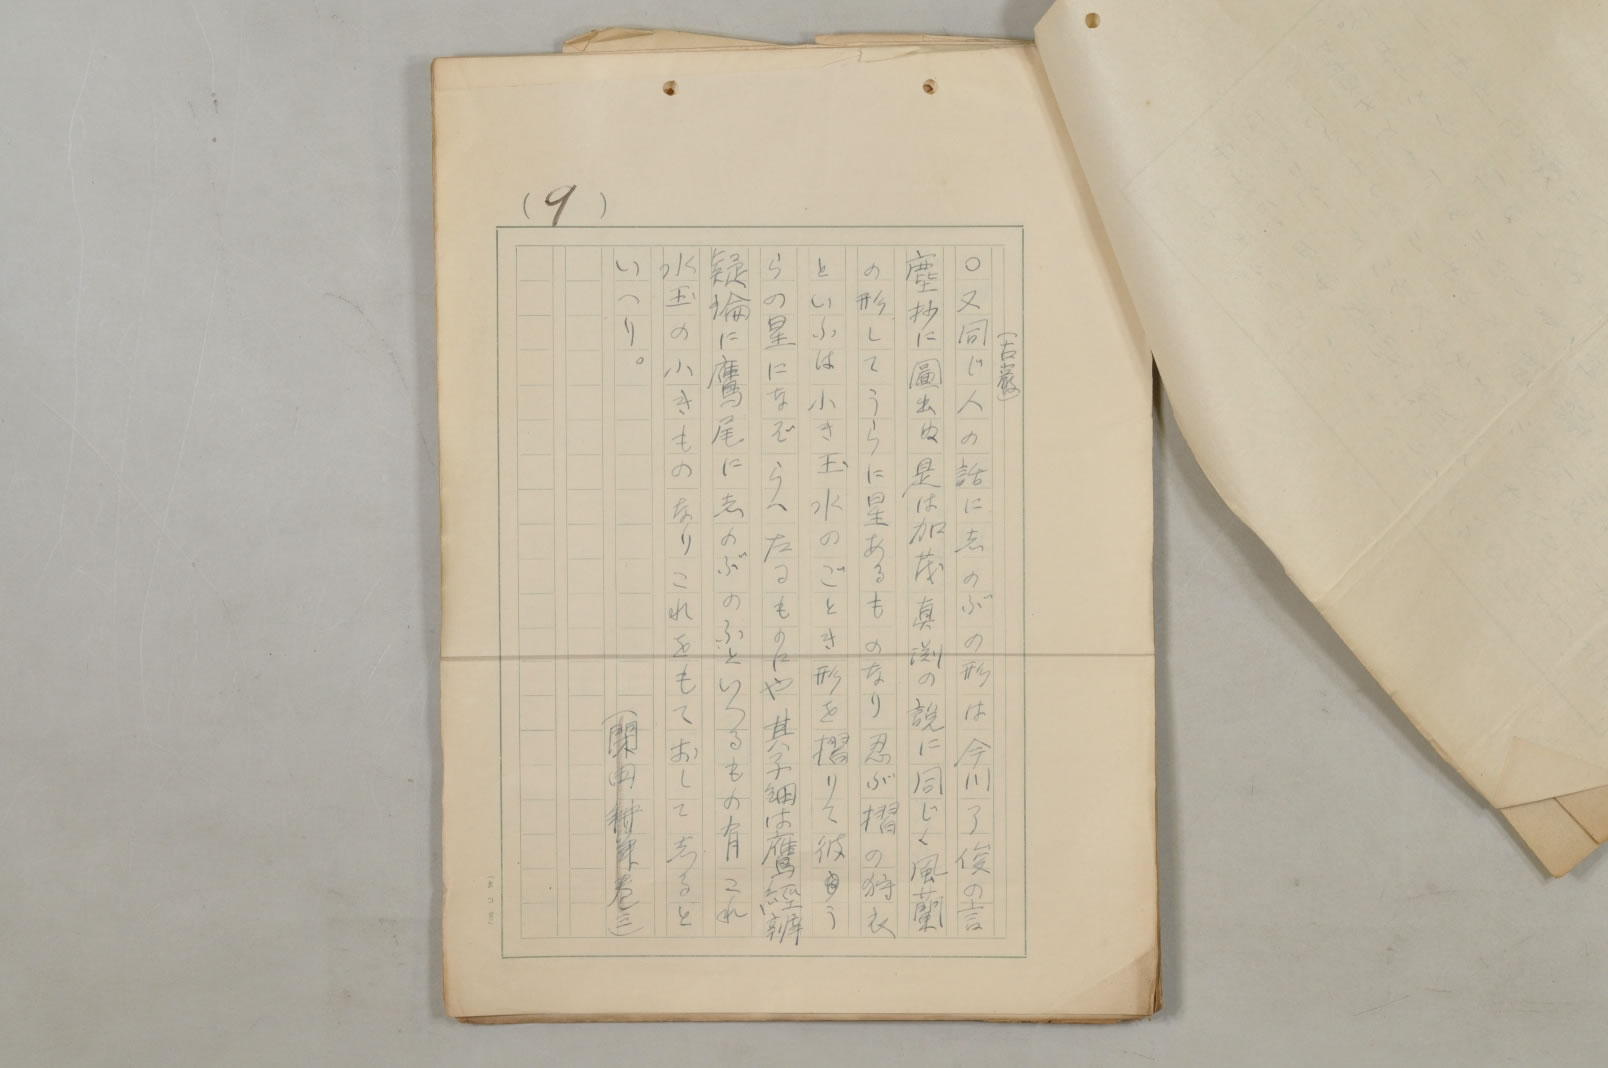 (9)
(古巌)
○又同じ人の話に志のぶの形は今川了俊の言
塵抄に圖出ぬ是は加茂真渕の説に同じく風蘭
の形してうらに星あるものなり忍ぶ摺の狩衣
といふは小き玉水のごとき形を摺りて彼う
らの星になぞらへたるものにや其子細は鷹經辨
疑論に鷹尾に志のぶのふといへるもの有これ
水玉の小きものなりこれをもておして志ると
いへり。
(閑田耕筆巻三)